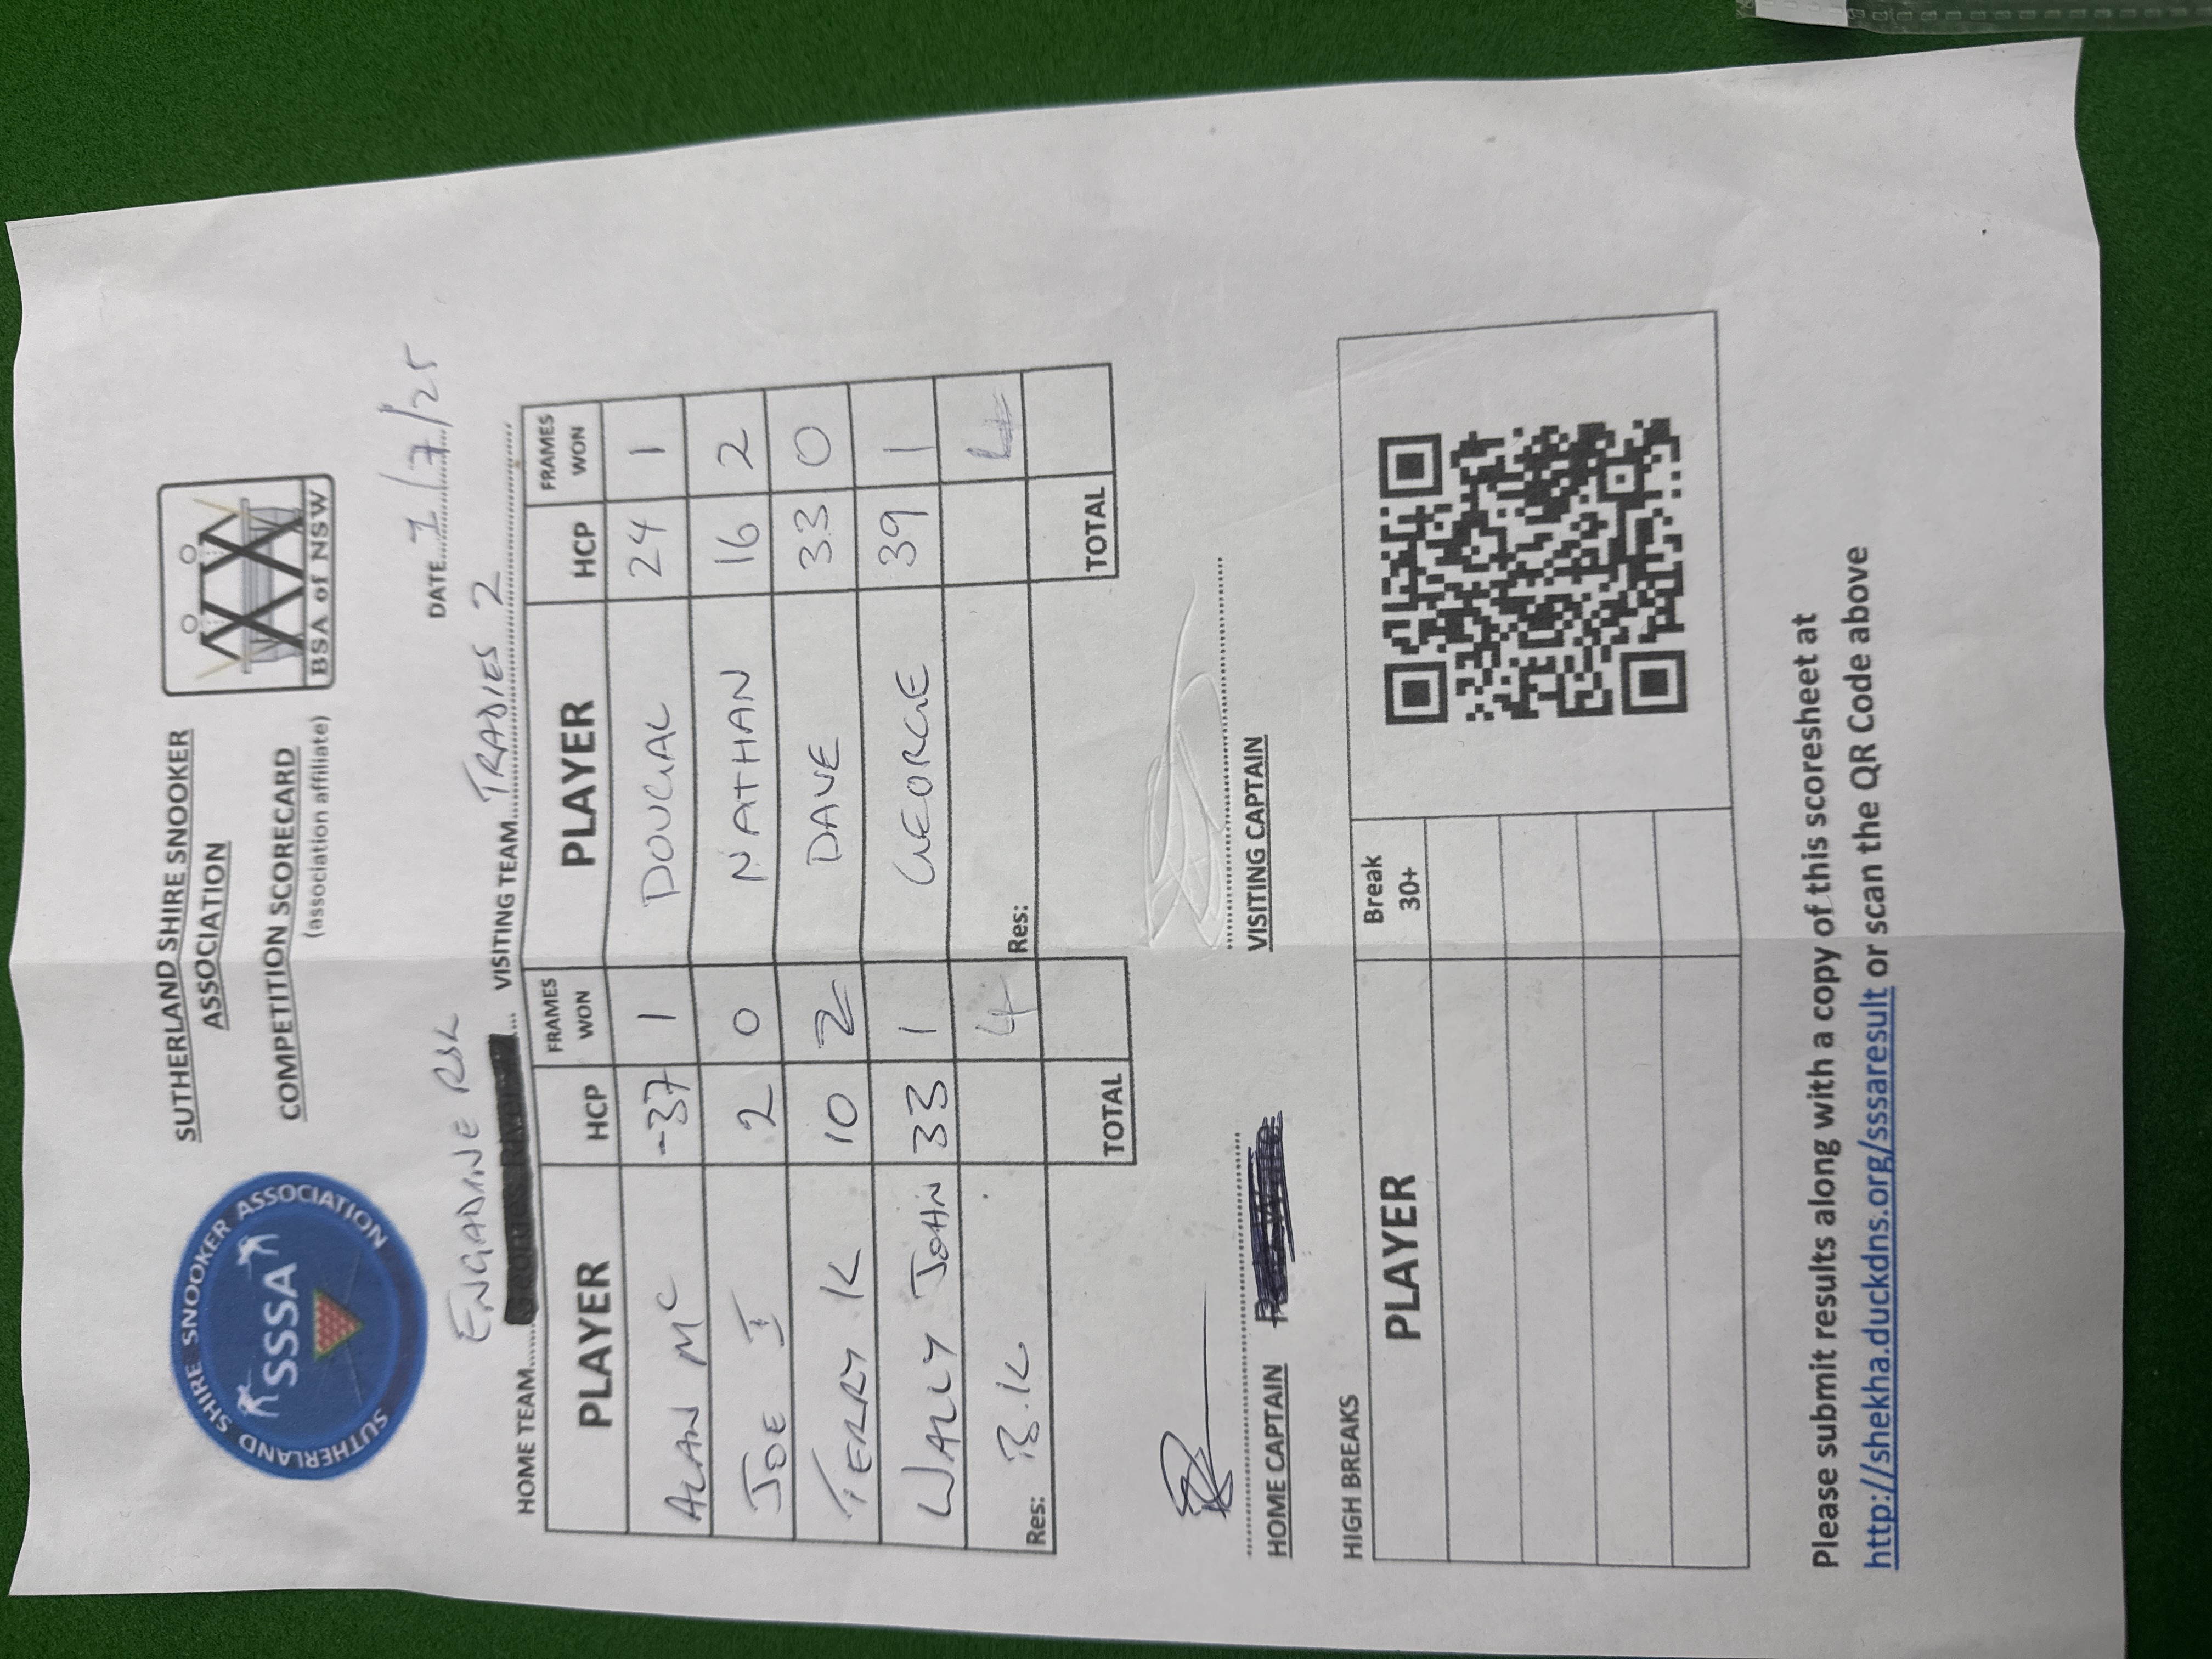 SUTHERLAND SHIRE SNOOKER ASSOCIATION
SSSA
SUTHERLAND SHIRE SNOOKER
ASSOCIATION
COMPETITION SCORECARD
(association affiliate)
BSA of NSW
DATE 1/7/25
ENGADINE RSL
HOME TEAM VISITING TEAM TRADIES 2
PLAYER HCP FRAMES WON PLAYER HCP FRAMES WON
ALAN MC -37 1 DOUGAL 24 1
JOE I 2 0 NATHAN 16 2
TERRY K 10 2 DAVE 33 0
WALLY JOHN 33 1 GEORGE 39 1
Res: B.K 4 Res:
TOTAL TOTAL
HOME CAPTAIN VISITING CAPTAIN
HIGH BREAKS
PLAYER Break 30+
Please submit results along with a copy of this scoresheet at
http://shekha.duckdns.org/sssaresult or scan the QR Code above